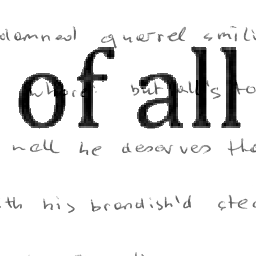 damned quarrel smili
of all
whore: but all's to
well he deserves tha
th his brandish'd stee